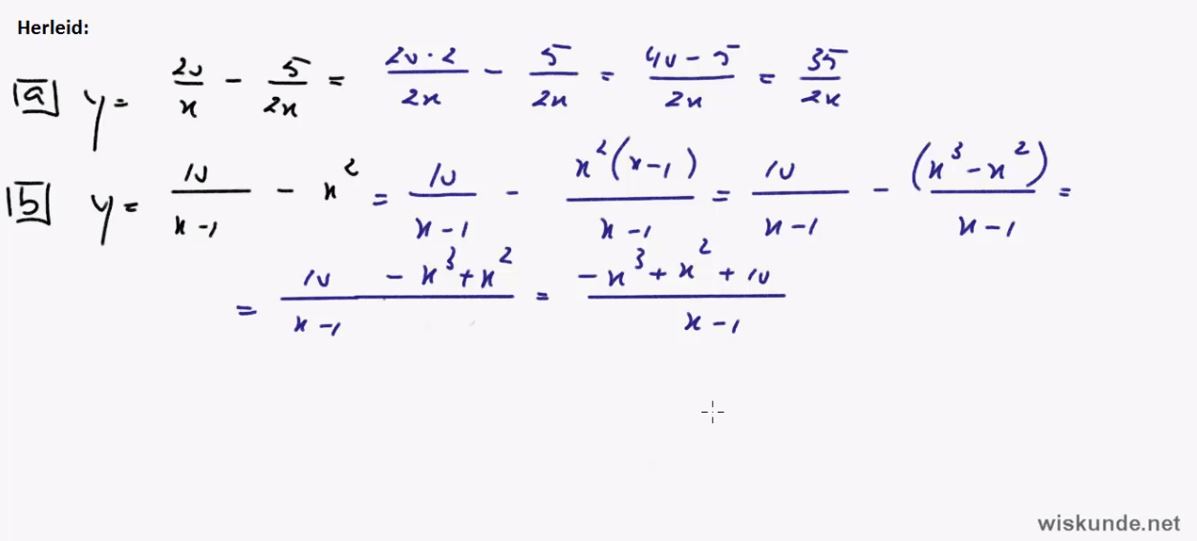 Herleid:
a y = 20/x - 5/2x = 20·2/2x - 5/2x = 40-5/2x = 35/2x
b y = 10/x-1 - x² = 10/x-1 - x²(x-1)/x-1 = 10/x-1 - (x³-x²)/x-1 =
= 10 -x³+x²/x-1 = -x³+x²+10/x-1
wiskunde.net